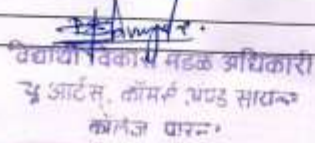 विद्यार्थी विकास मंडळ अधिकारी
न्यू आर्टस्, कॉमर्स अॅण्ड सायन्स
कॉलेज पारनेर